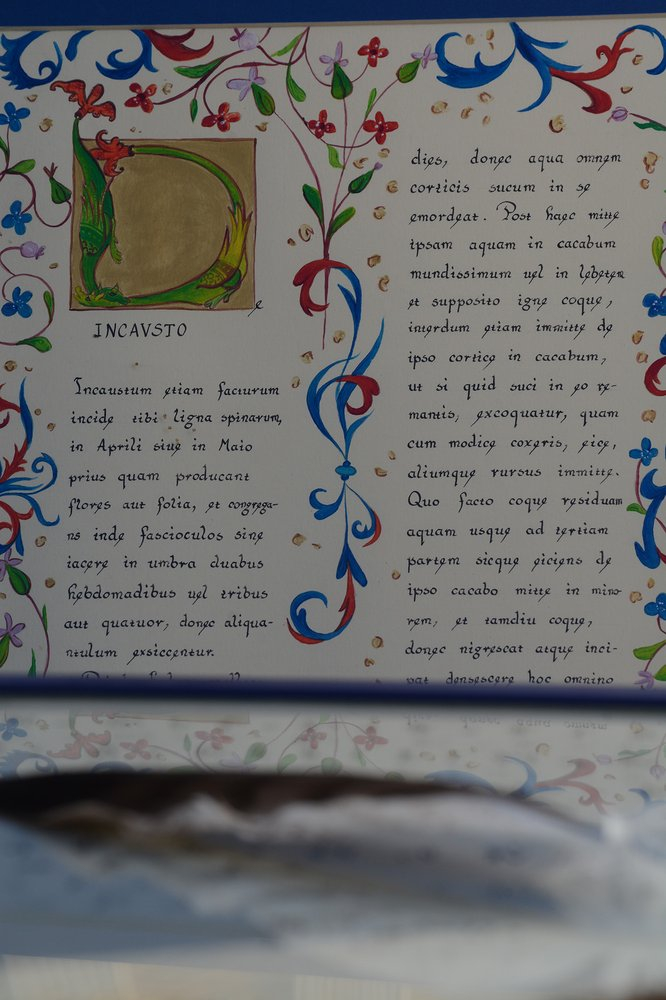 De
INCAVSTO
Incaustum etiam facturum
incide tibi ligna spinarum,
in Aprili siue in Maio
prius quam producant
flores aut folia, et congrega-
ns inde fascioculos sine
iacere in umbra duabus
hebdomadibus uel tribus
aut quatuor, donec aliqua-
ntulum exsiccentur.
dies, donec aqua omnem
corticis sucum in se
emordeat. Post haec mitte
ipsam aquam in cacabum
mundissimum uel in lebetem
et supposito igne coque,
interdum etiam immitte de
ipso cortice in cacabum,
ut si quid suci in eo re-
mantis, excoquatur, quam
cum modice coxeris, eice,
aliumque rursus immitte.
Quo facto coque residuam
aquam usque ad tertiam
partem sicque eiciens de
ipso cacabo mitte in mino
rem, et tamdiu coque,
donec nigrescat atque inci-
pat densescere hoc omnino